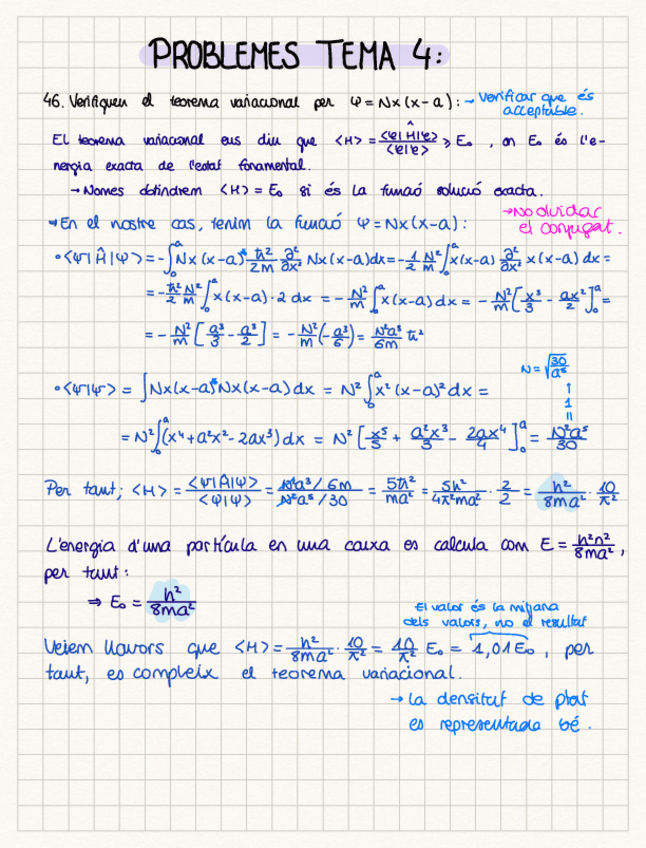 PROBLEMES TEMA 4:
46. Verifiqueu el teorema variacional per Ψ = Nx(x-a): → Verificar que és
acceptable.
El teorema variacional ens diu que <H> = <Ψ|Ĥ|Ψ> / <Ψ|Ψ> ≥ E₀, on E₀ és l'e-
nergia exacta de l'estat fonamental.
→ Nomes obtindrem <H> = E₀ si és la funció solució exacta.
→ En el nostre cas, tenim la funció Ψ = Nx(x-a):
→ No olvidar
el conjugat.
• <Ψ|Ĥ|Ψ> = -∫₀ᵃ Nx(x-a)* ħ²/2m ∂²/∂x² Nx(x-a)dx = -1/2 N²/m ∫₀ᵃ x(x-a) ∂²/∂x² x(x-a) dx =
= -ħ²/2 N²/m ∫₀ᵃ x(x-a)·2 dx = -N²/m ∫₀ᵃ x(x-a) dx = -N²/m [x³/3 - ax²/2]₀ᵃ =
= -N²/m [a³/3 - a³/2] = -N²/m (-a³/6) = N²a³/6m ħ²
N = √(30/a⁵)
↑
1
=
• <Ψ|Ψ> = ∫Nx(x-a)* Nx(x-a) dx = N² ∫₀ᵃ x²(x-a)² dx =
= N² ∫₀ᵃ (x⁴ + a²x² - 2ax³) dx = N² [x⁵/5 + a²x³/3 - 2ax⁴/4]₀ᵃ = N²a⁵/30
Per tant; <H> = <Ψ|Ĥ|Ψ> / <Ψ|Ψ> = N²a³/6m / N²a⁵/30 = 5ħ²/ma² = 5h²/4π²ma² · 2/2 = h²/8ma² · 10/π²
L'energia d'una partícula en una caixa es calcula com E = h²n²/8ma²,
per tant:
⇒ E₀ = h²/8ma²
El valor és la mitjana
dels valors, no el resultat
Veiem llavors que <H> = h²/8ma² · 10/π² = 10/π² E₀ = 1,01E₀, per
tant, es compleix el teorema variacional.
→ la densitat de
es representada bé.